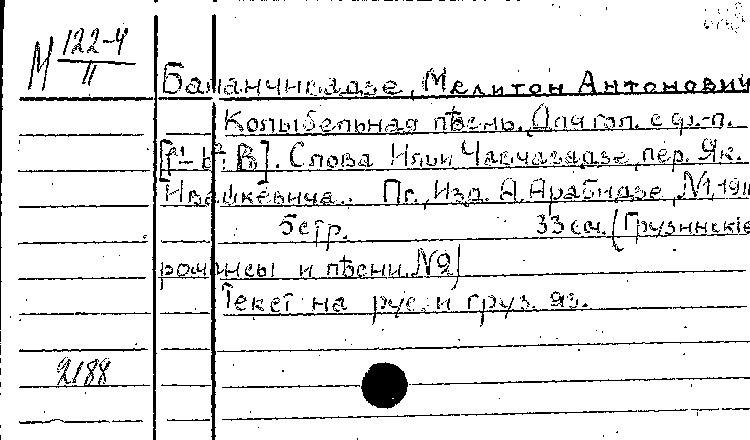 М 122-4
II
Баланчивадзе, Мелитон Антонович
Колыбельная пѣснь. Для гол. с ф.-п.
Слова Ильи Чавчавадзе, пер. Як.
Ивашкевича. Пг., Изд. А. Арабидзе, №1, 191
5 стр. 33 см. (Грузинскіе
романсы и пѣсни №2)
Текст на рус. и груз. яз.
2188